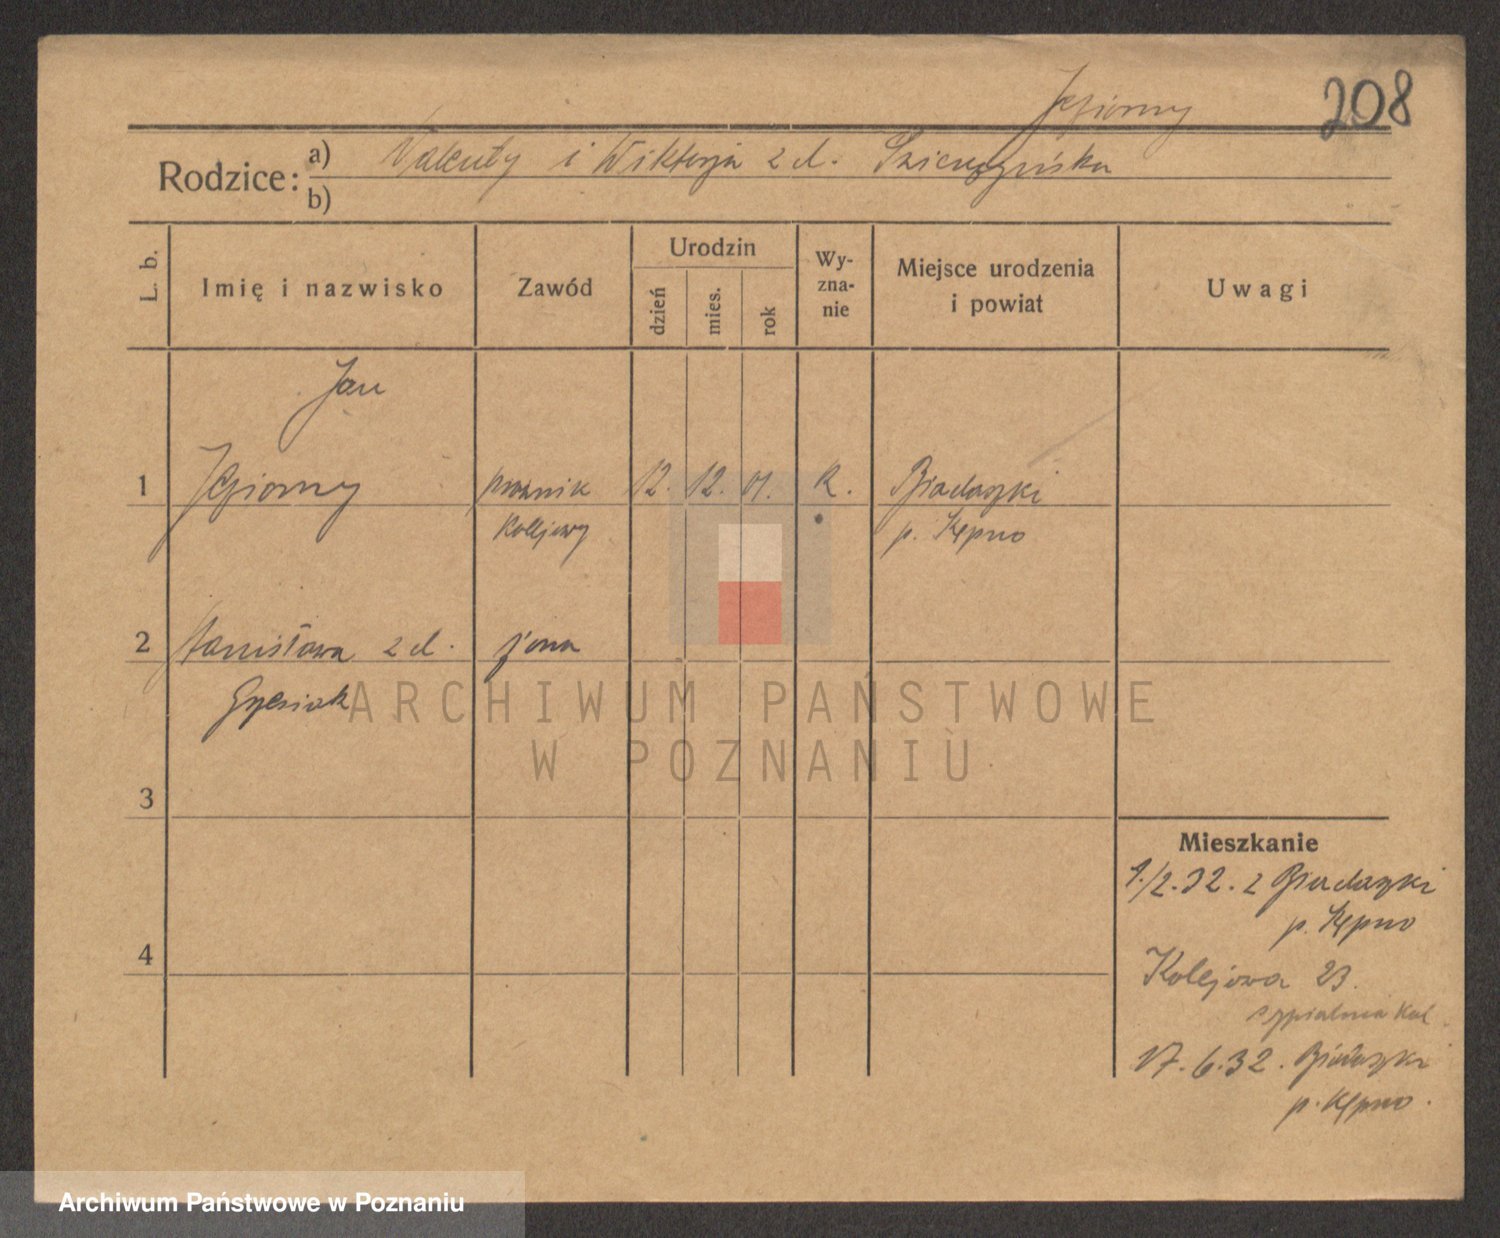 Jeziorny 208
Rodzice: a) Walenty i Wiktorja z d.
b)
L. b.
Imię i nazwisko
Zawód
Urodzin
dzień
mies.
rok
Wy-
zna-
nie
Miejsce urodzenia
i powiat
Uwagi
Jan
1 Jeziorny 12. 12. 01. R. Biadaszki
kolejowy p. Kępno
2 Stanisława z d. żona
Grzesiak
3
4
Mieszkanie
1./2.32. z Biadaszki
p. Kępno
Kolejowa 23.
sypialnia kol.
17.6.32. Biadaszki
p. Kępno.
ARCHIWUM PAŃSTWOWE
W POZNANIU
Archiwum Państwowe w Poznaniu